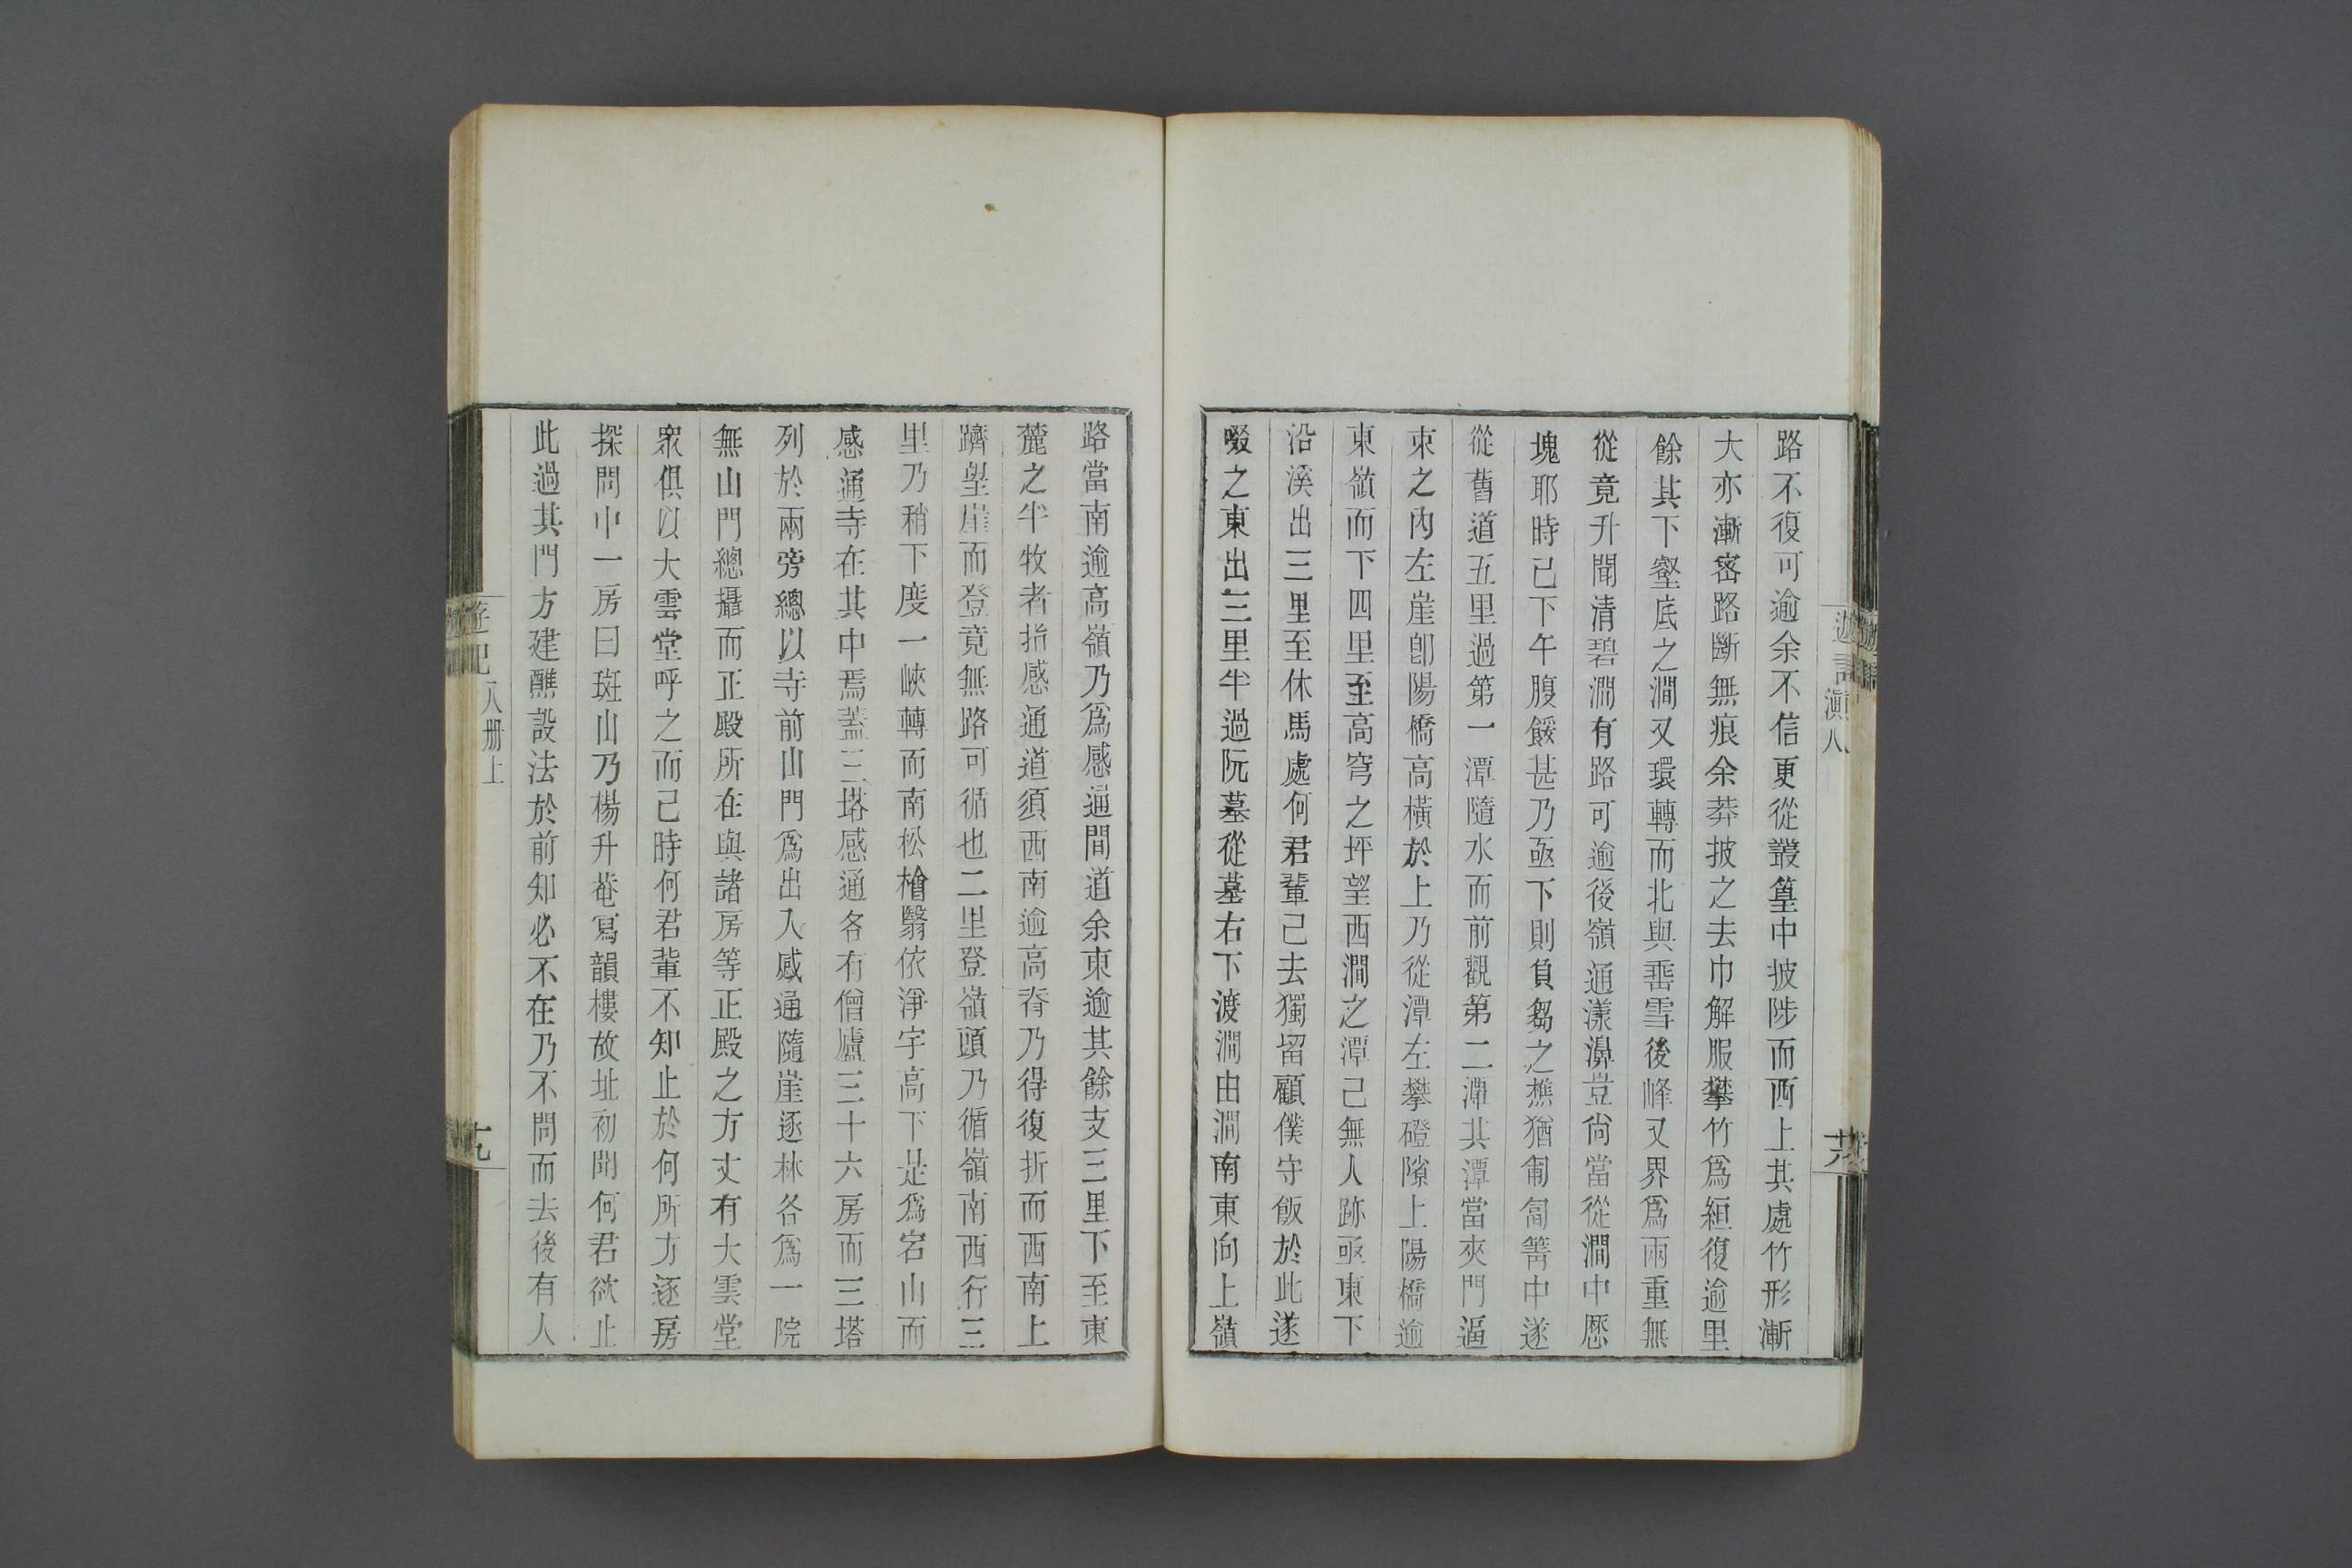 路不復可逾余不信更從叢篁中披陟而西上其處竹形漸
大亦漸密路斷無痕余莽披之去巾解服攀竹爲絙復逾里
餘其下壑底之澗又環轉而北與垂雪後峰又界爲兩重無
從竟升聞清碧澗有路可逾後嶺通漾濞豈尙當從澗中歷
塊耶時已下午腹餒甚乃亟下則負芻之樵猶匍匐箐中遂
從舊道五里過第一潭隨水而前觀第二潭其潭當夾門逼
束之內左崖卽陽橋高橫於上乃從潭左攀磴隙上陽橋逾
東嶺而下四里至高穹之坪望西澗之潭已無人跡亟東下
沿溪出三里至休馬處何君輩已去獨留顧僕守飯於此遂
啜之東出三里半過阮墓從墓右下渡澗由澗南東向上嶺
路當南逾高嶺乃爲感通間道余東逾其餘支三里下至東
麓之半牧者指感通道須西南逾高脊乃得復折而西南上
躋望崖而登竟無路可循也二里登嶺頭乃循嶺南西行三
里乃稍下度一峽轉而南松檜翳依淨宇高下是爲宕山而
感通寺在其中焉蓋三塔感通各有僧廬三十六房而三塔
列於兩旁總以寺前山門爲出入感通隨崖逐林各爲一院
無山門總攝而正殿所在與諸房等正殿之方丈有大雲堂
衆俱以大雲堂呼之而已時何君輩不知止於何所方逐房
探問中一房曰斑山乃楊升菴寫韻樓故址初聞何君欲止
此過其門方建醮設法於前知必不在乃不問而去後有人
遊記
八册上